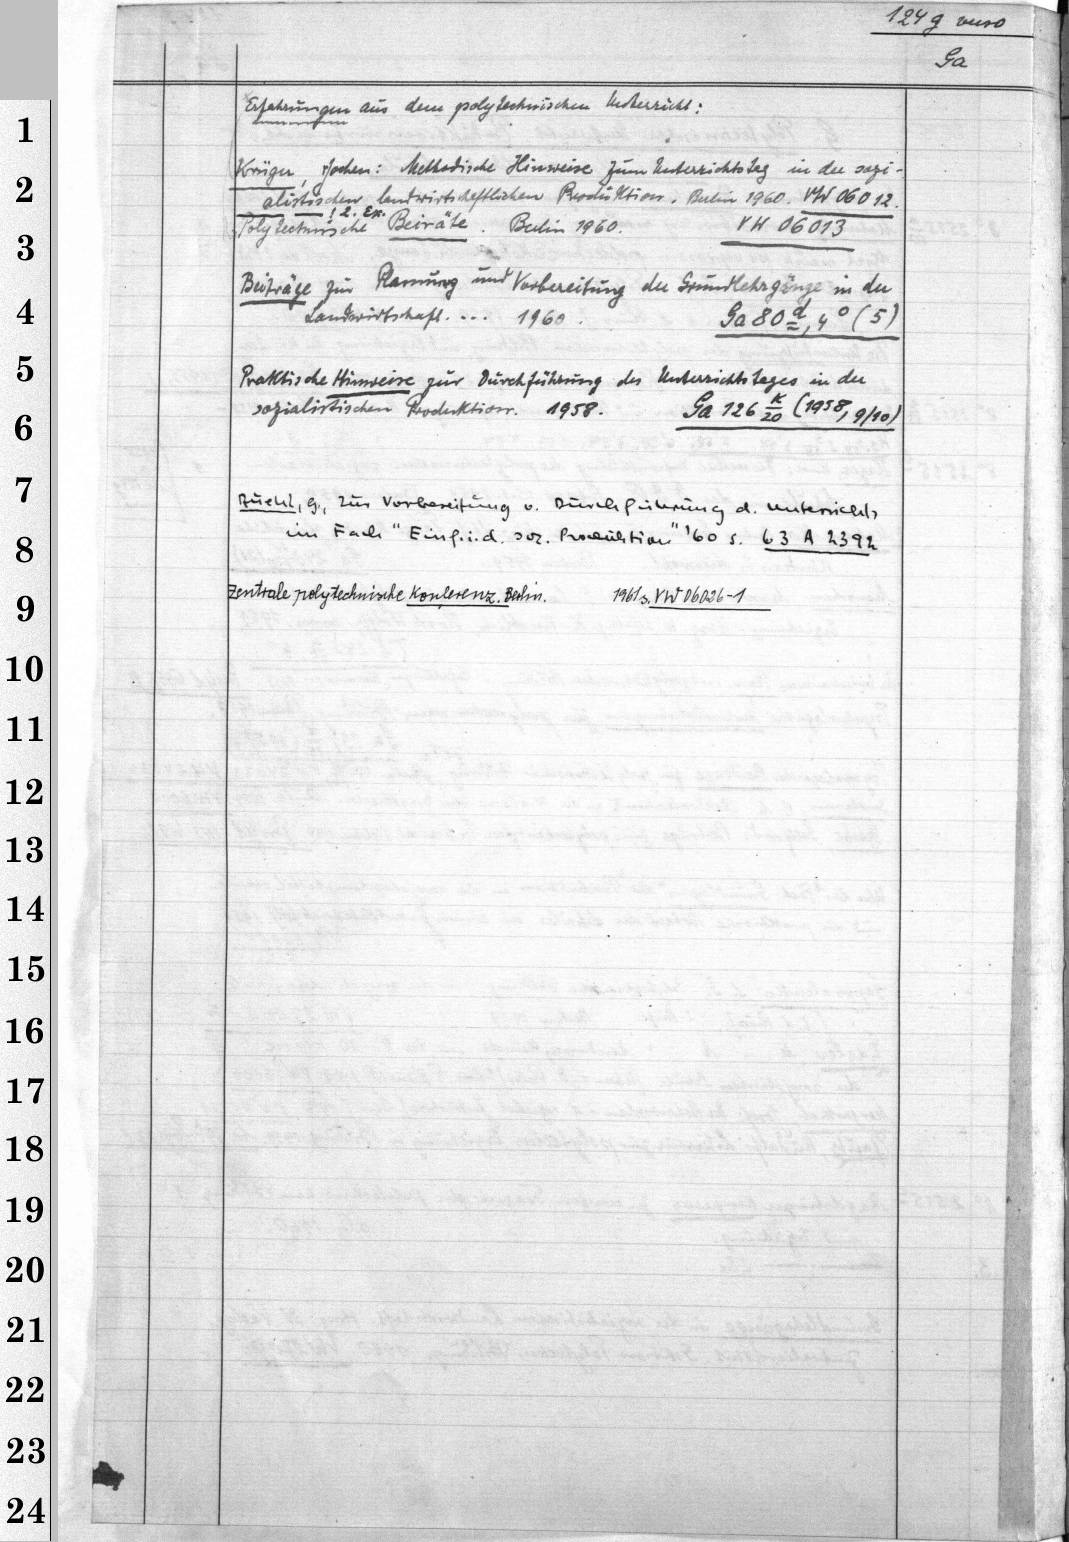 124 g verso
Ga
Erfahrungen aus dem polytechnischen Unterricht:
1
Krüger, Jochen: Methodische Hinweise zum Unterrichtstag in der sozi-
2
alistischen landwirtschaftlichen Produktion. Berlin 1960. VW 06012.
! 2. Ex.
Polytechnische Beiräte. Berlin 1960. VW 06013
3
Beiträge zur Planung und Vorbereitung der Grundlehrgänge in der
4
Landwirtschaft. ... 1960. Ga 80 d, 4° (5)
5
Praktische Hinweise zur Durchführung des Unterrichtstages in der
6
sozialistischen Produktion. 1958. Ga 126 K/20 (1958, 9/10)
7
G., Zur Vorbereitung u. Durchführung d. Unterrichts
8
im Fach "Einf. i. d. soz. Produktion" '60 s. 63 A 2392
9
Zentrale polytechnische Konferenz. Berlin. 1961 s. VW 06026-1
10
11
12
13
14
15
16
17
18
19
20
21
22
23
24